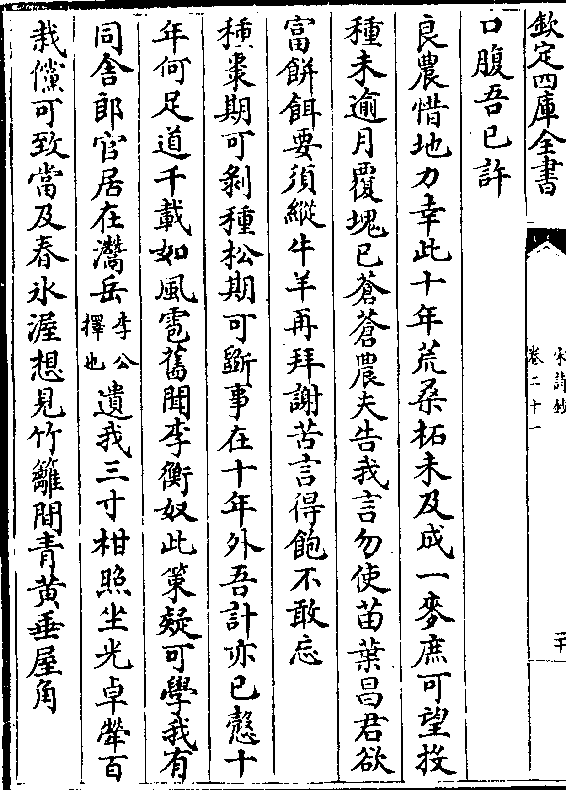 欽定四庫全書
口腹吾已許
良農惜地力幸此十年荒桑柘未及成一麥庶可望投
種未逾月覆塊已蒼蒼農夫告我言勿使苗葉昌君欲
富餅餌要須縱牛羊再拜謝苦言得飽不敢忘
種棗期可剝種松期可斵事在十年外吾計亦已慤十
年何足道千載如風雹舊聞李衡奴此策疑可學我有
同舍郎官居在灊岳李公擇也遺我三寸柑照坐光卓犖百
栽儻可致當及春氷渥想見竹籬間青黄垂屋角
宋詩鈔
卷二十一
二十